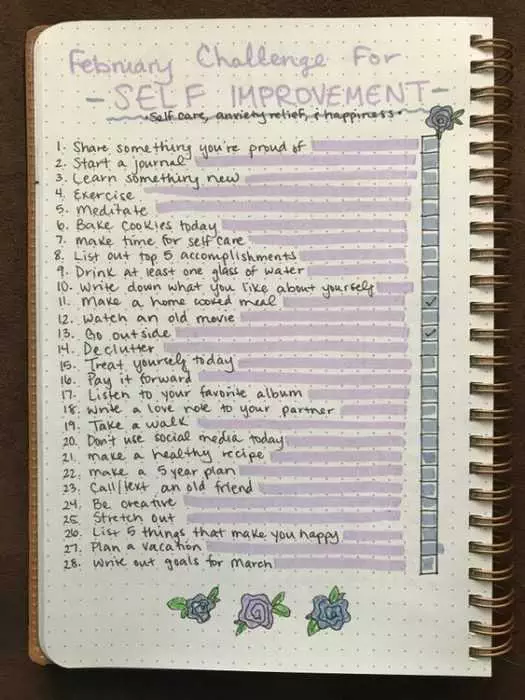 February Challenge For
- SELF IMPROVEMENT -
• Self care, anxiety relief, & happiness •
1. Share something you're proud of
2. Start a journal
3. Learn something new
4. Exercise
5. Meditate
6. Bake cookies today
7. make time for self care
8. List out top 5 accomplishments
9. Drink at least one glass of water
10. Write down what you like about yourself
11. Make a home cooked meal ✓
12. Watch an old movie
13. Go outside ✓
14. Declutter
15. Treat yourself today
16. Pay it forward
17. Listen to your favorite album
18. Write a love note to your partner
19. Take a walk
20. Don't use social media today
21. make a healthy recipe
22. make a 5 year plan
23. Call/text an old friend
24. Be creative
25. Stretch out
26. List 5 things that make you happy
27. Plan a vacation
28. Write out goals for March